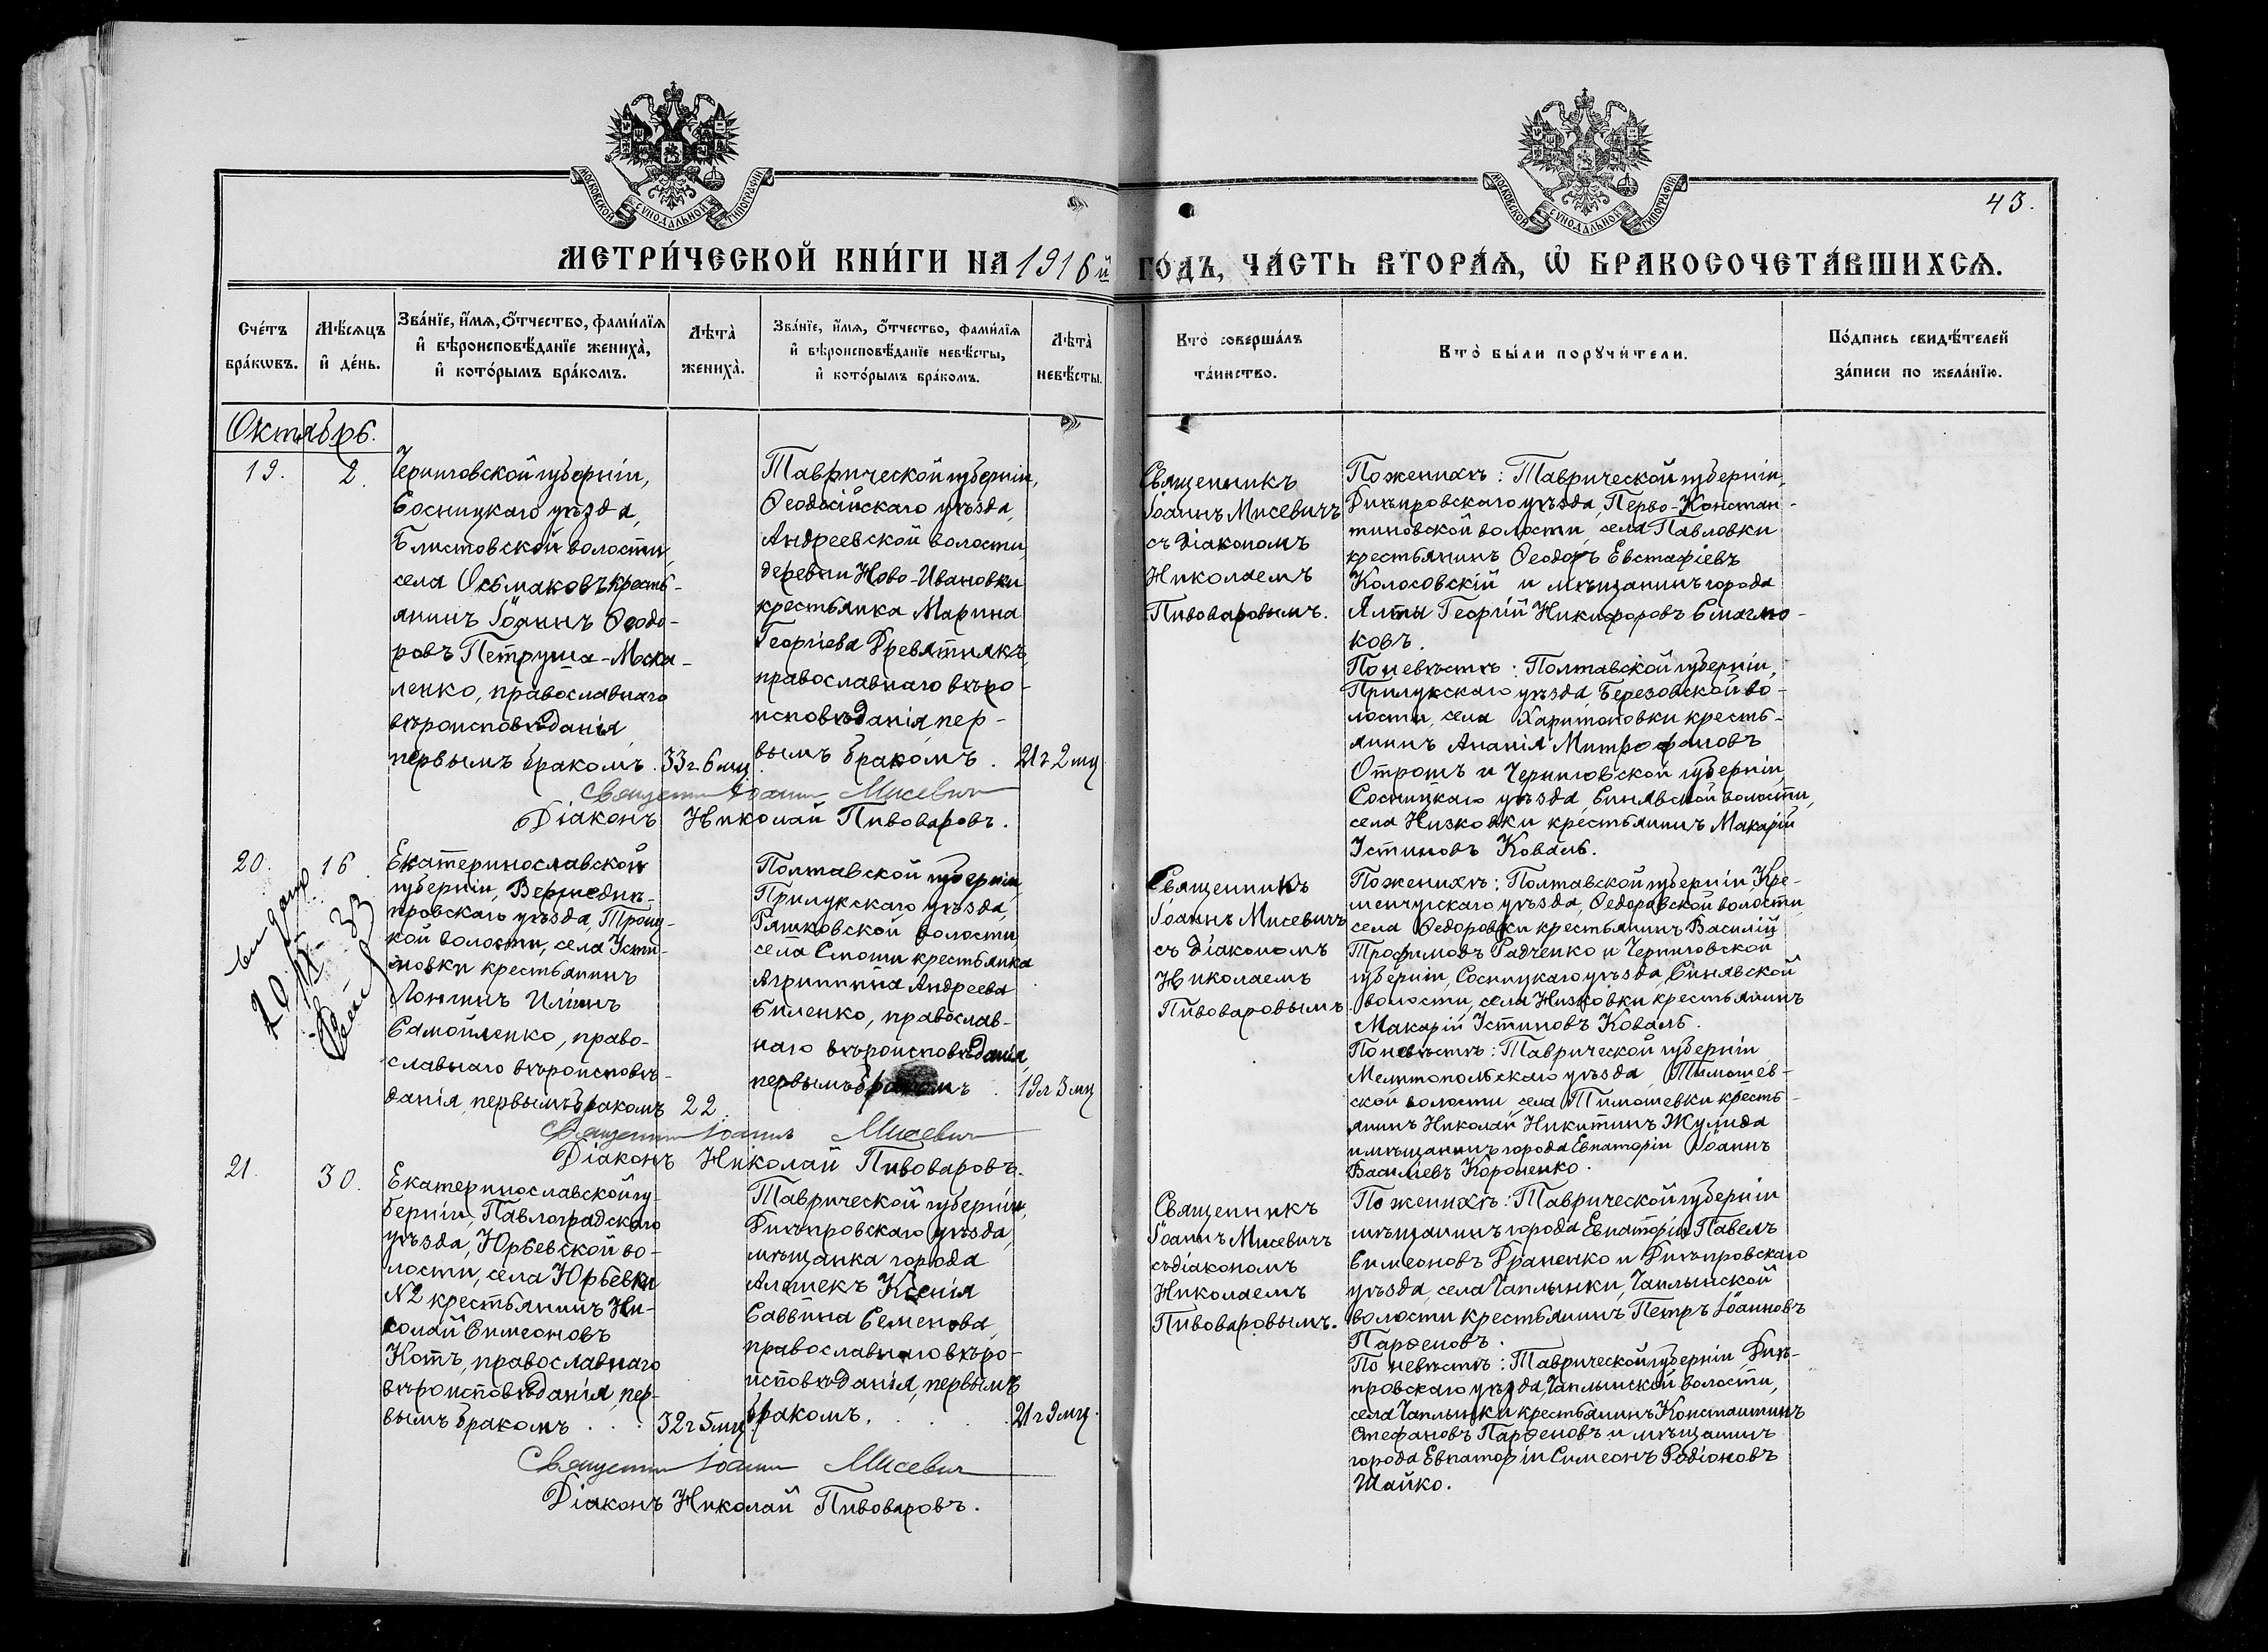 МОСКОВСКОЙ СѴНОДАЛЬНОЙ ТИПОГРАФІИ
МОСКОВСКОЙ СѴНОДАЛЬНОЙ ТИПОГРАФІИ
43.
МЕТРИ́ЧЕСКОЙ КНИ́ГИ НА 1916й ГО́ДЪ, ЧА́СТЬ ВТОРА́Ѧ, Ѡ БРАКОСОЧЕТА́ВШИХСѦ.
Сче́тъ
бра́кωвъ.
Мѣ́сѧцъ
и҆ де́нь.
Зва́нїе, и҆́мѧ, о҆́тчество, фами́лїѧ
и҆ вѣроисповѣ́данїе жениха̀,
и҆ кото́рымъ бра́комъ.
Лѣта̀
жениха̀.
Зва́нїе, и҆́мѧ, о҆́тчество, фами́лїѧ
и҆ вѣроисповѣ́данїе невѣ́сты,
и҆ кото́рымъ бра́комъ.
Лѣта̀
невѣ́сты.
Кто̀ соверша́лъ
та́инство.
Кто̀ бы́ли порꙋчи́тели.
По́дпись свидѣ́телей
за́писи по жела́нїю.
Октябрь.
19.
2.
Черниговской губерніи,
Сосницкаго уѣзда,
Блистовской волости,
села Осьмаковъ кресть-
янинъ Іоаннъ Ѳеодо-
ровъ Петруша-Моска-
ленко, православнаго
вѣроисповѣданія,
первымъ бракомъ.
33 г. 6 мц.
Таврической губерніи,
Ѳеодосійскаго уѣзда,
Андреевской волости
деревни Ново-Ивановки
крестьянка Марина
Георгіева Древятнякъ,
православнаго вѣро-
исповѣданія, пер-
вымъ бракомъ.
21 г. 2 мц.
Священникъ
Іоаннъ Мисевичъ
съ діакономъ
Николаемъ
Пивоваровымъ.
По женихѣ: Таврической губерніи,
Днѣпровскаго уѣзда, Перво-Констан-
тиновской волости, села Павловки
крестьянинъ Ѳеодоръ Евстафіевъ
Колосовскій и мѣщанинъ города
Ялты Георгій Никифоровъ
ковъ.
По невѣстѣ: Полтавской губерніи,
Прилукскаго уѣзда, Березовской во-
лости, села Харитоновки кресть-
янинъ Ананія Митрофановъ
Отрошъ и Черниговской губерніи,
Сосницкаго уѣзда, Синявской волости,
села Низковки крестьянинъ Макарій
Іустиновъ Коваль.
Священникъ Іоаннъ Мисевичъ
Діаконъ Николай Пивоваровъ.
20.
16.
20/IX-33
Екатеринославской
губерніи, Верхнеднѣ-
провскаго уѣзда, Троиц-
кой волости, села Усти-
новки крестьянинъ
Лонгинъ Иліинъ
Самойленко, право-
славнаго вѣроисповѣ-
данія, первымъ бракомъ
22.
Полтавской губерніи,
Прилукскаго уѣзда,
Ряшковской волости
села Смоши крестьянка
Агриппина Андреева
Биленко, православ-
наго вѣроисповѣданія,
первымъ бракомъ.
19 л 3 мц
Священникъ
Іоаннъ Мисевичъ
съ діакономъ
Николаемъ
Пивоваровымъ.
По женихѣ: Полтавской губерніи, Кре-
менчугскаго уѣзда, Ѳедоровской волости,
села Ѳедоровки крестьянинъ Василій
Трофимовъ Радченко и Черниговской
губерніи, Сосницкаго уѣзда, Синявской
волости, села Низковки крестьянинъ
Макарій Іустиновъ Коваль.
По невѣстѣ: Таврической губерніи
Мелитопольскаго уѣзда, Тимошев-
ской волости села Тимошевки кресть-
янинъ Николай Никитинъ Жулида
и мѣщанинъ города Евпаторіи Іоаннъ
Василіевъ Короленко.
Священникъ Іоаннъ Мисевичъ
Діаконъ Николай Пивоваровъ.
21.
30.
Екатеринославской гу-
берніи, Павлоградскаго
уѣзда, Юрьевской во-
лости, села Юрьевки
№2 крестьянинъ Ни-
колай Симеоновъ
Котъ, православнаго
вѣроисповѣданія, пер-
вымъ бракомъ . . .
32 г 5 мц.
Таврической губерніи,
Днѣпровскаго уѣзда,
мѣщанка города
Алешекъ Ксенія
Саввина Семенова,
православнаго вѣро-
исповѣданія, первымъ
бракомъ. . . . .
21 г 9 мц.
Священникъ
Іоаннъ Мисевичъ
съ діакономъ
Николаемъ
Пивоваровымъ.
По женихѣ: Таврической губерніи
мѣщанинъ города Евпаторіи Павелъ
Симеоновъ Граненко и Днѣпровскаго
уѣзда, села Чаплынки, Чаплынской
волости крестьянинъ Петръ Іоанновъ
Парѳеновъ.
По невѣстѣ: Таврической губерніи Днѣ-
провскаго уѣзда, Чаплынской волости,
села Чаплынки крестьянинъ Константинъ
Стефановъ Парѳеновъ и мѣщанинъ
города Евпаторіи Симеонъ Родіоновъ
Шайко.
Священникъ Іоаннъ Мисевичъ
Діаконъ Николай Пивоваровъ.